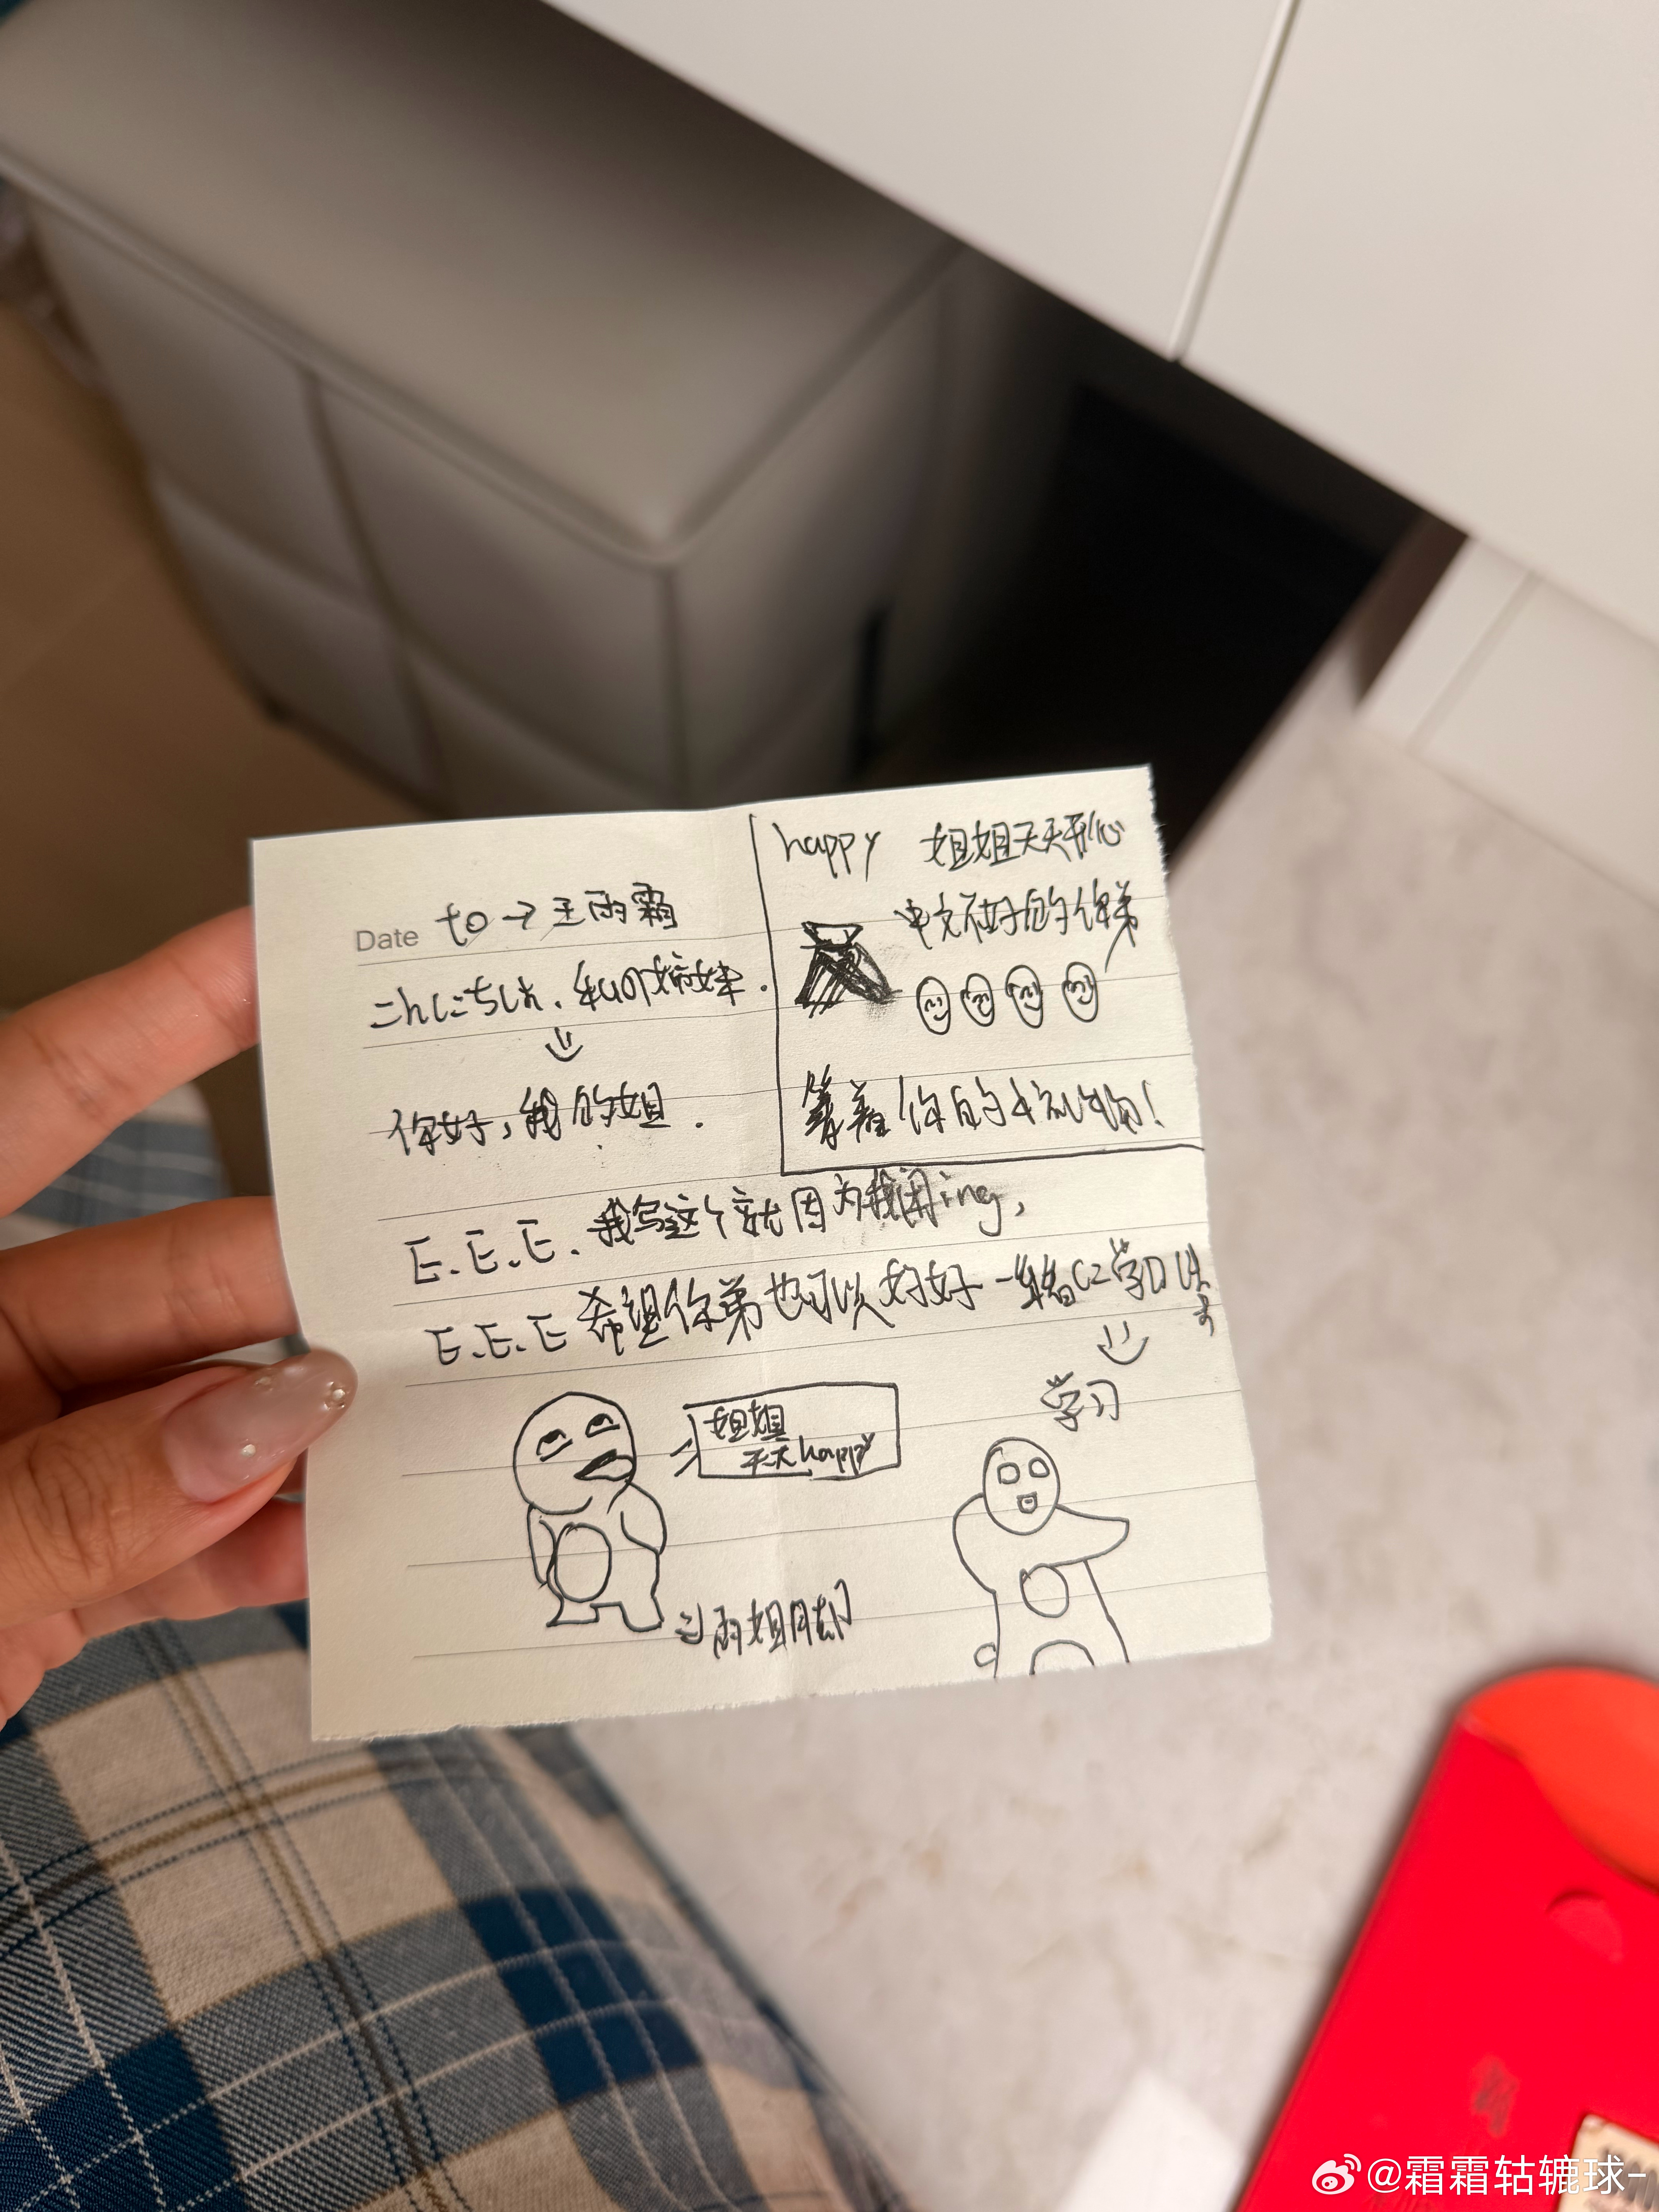 Date to→王雨霜
こんにちは、私の姉妹.
你好,我的姐.
happy 姐姐天天开心
中文不好的你弟
等着你的大礼物!
E.E.E.我写这个就因为我闲ing,
E.E.E希望你弟也可以好好
学习
姐姐
天天happy
雨姐
@霜霜轱辘球-